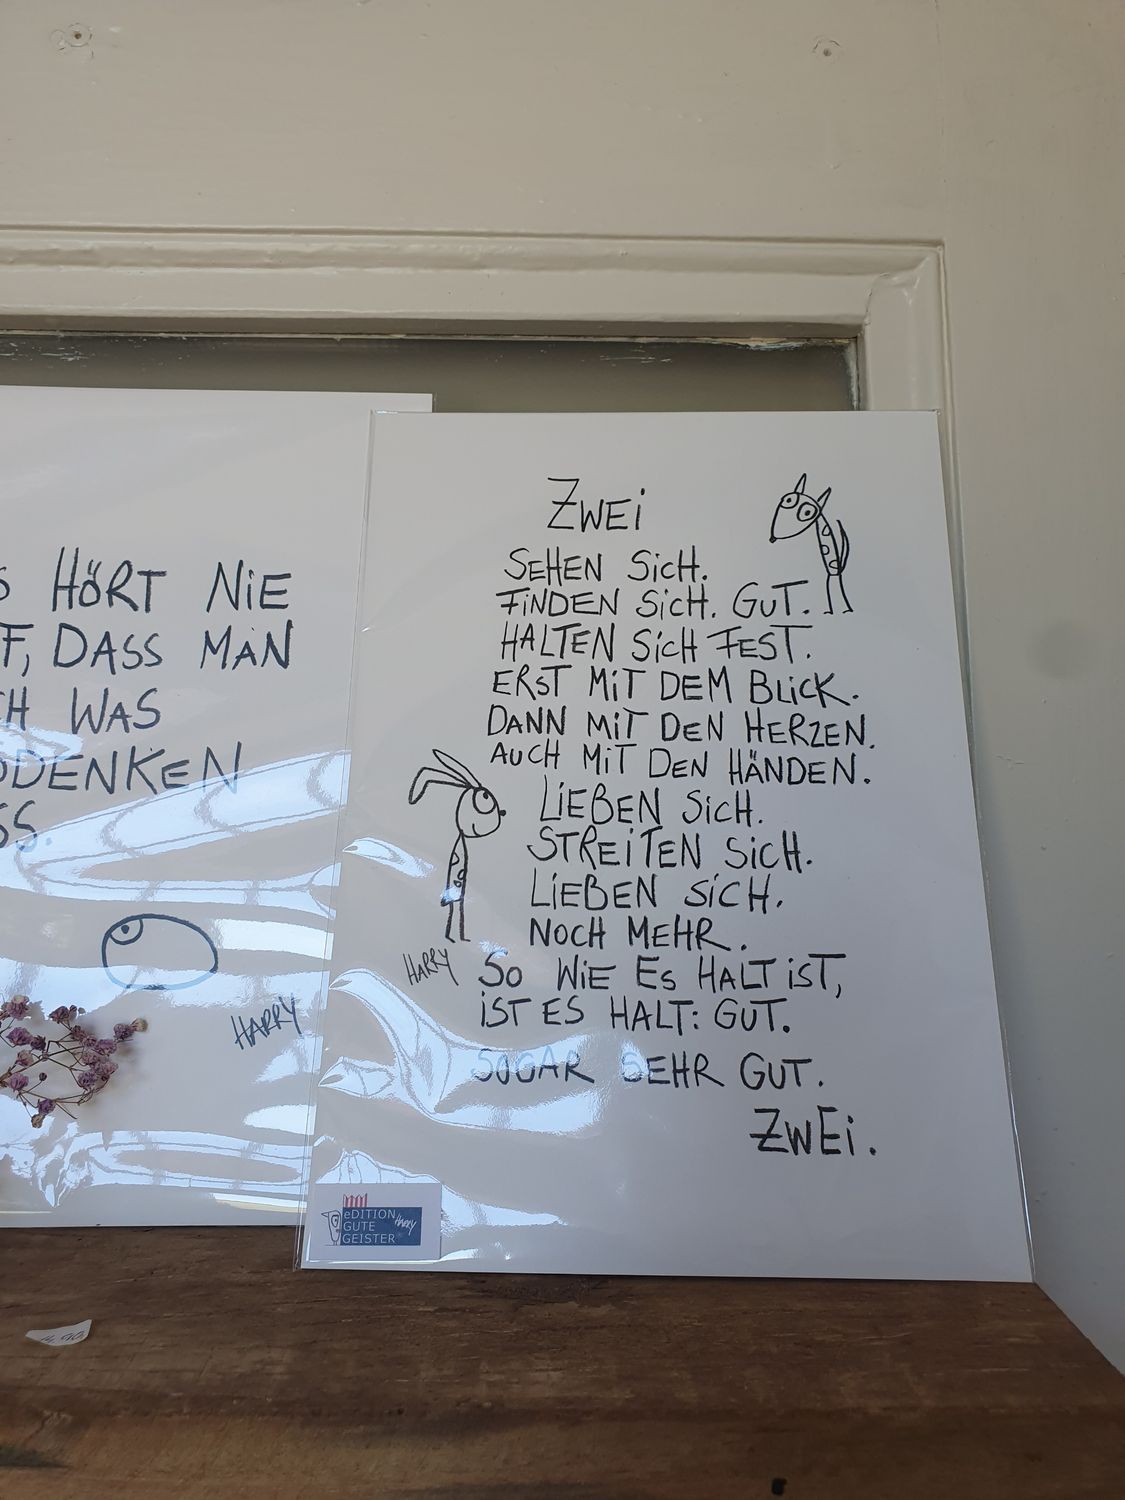 HÖRT NiE
DASS MAN
WAS
HARRY
ZWEi
SEHEN SiCH.
FiNDEN SiCH. GUT.
HALTEN SiCH FEST.
ERST MiT DEM BLiCK.
DANN MiT DEN HERZEN.
AUCH MiT DEN HÄNDEN.
LiEBEN SiCH.
STREiTEN SiCH.
LiEBEN SiCH.
NOCH MEHR.
HARRY
SO WiE ES HALT iST,
iST ES HALT: GUT.
SOGAR SEHR GUT.
ZWEi.
eDITION
GUTE
GEISTER
Harry